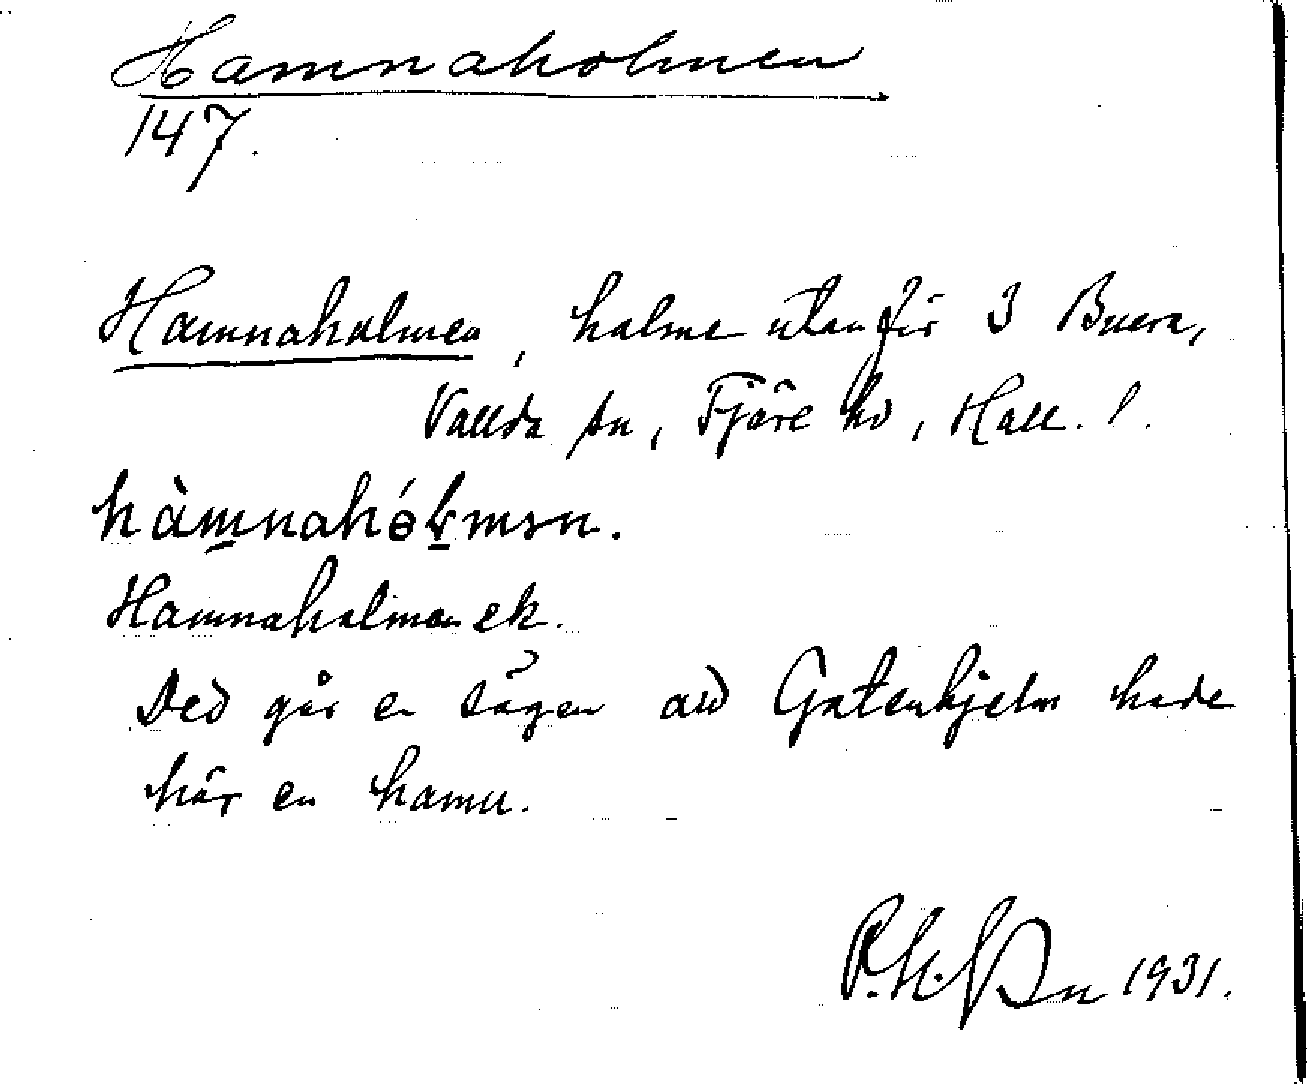 Hamnaholmen
147.
Hamnaholmen, holme utanför 3 Buera,
Vallda sn, Fjäre hd, Hall. l.
hàmnahólmən.
Hamnaholmen ek.
Ded går en sägen
ad Gatenhjelm hade
här en hamn.
1931.